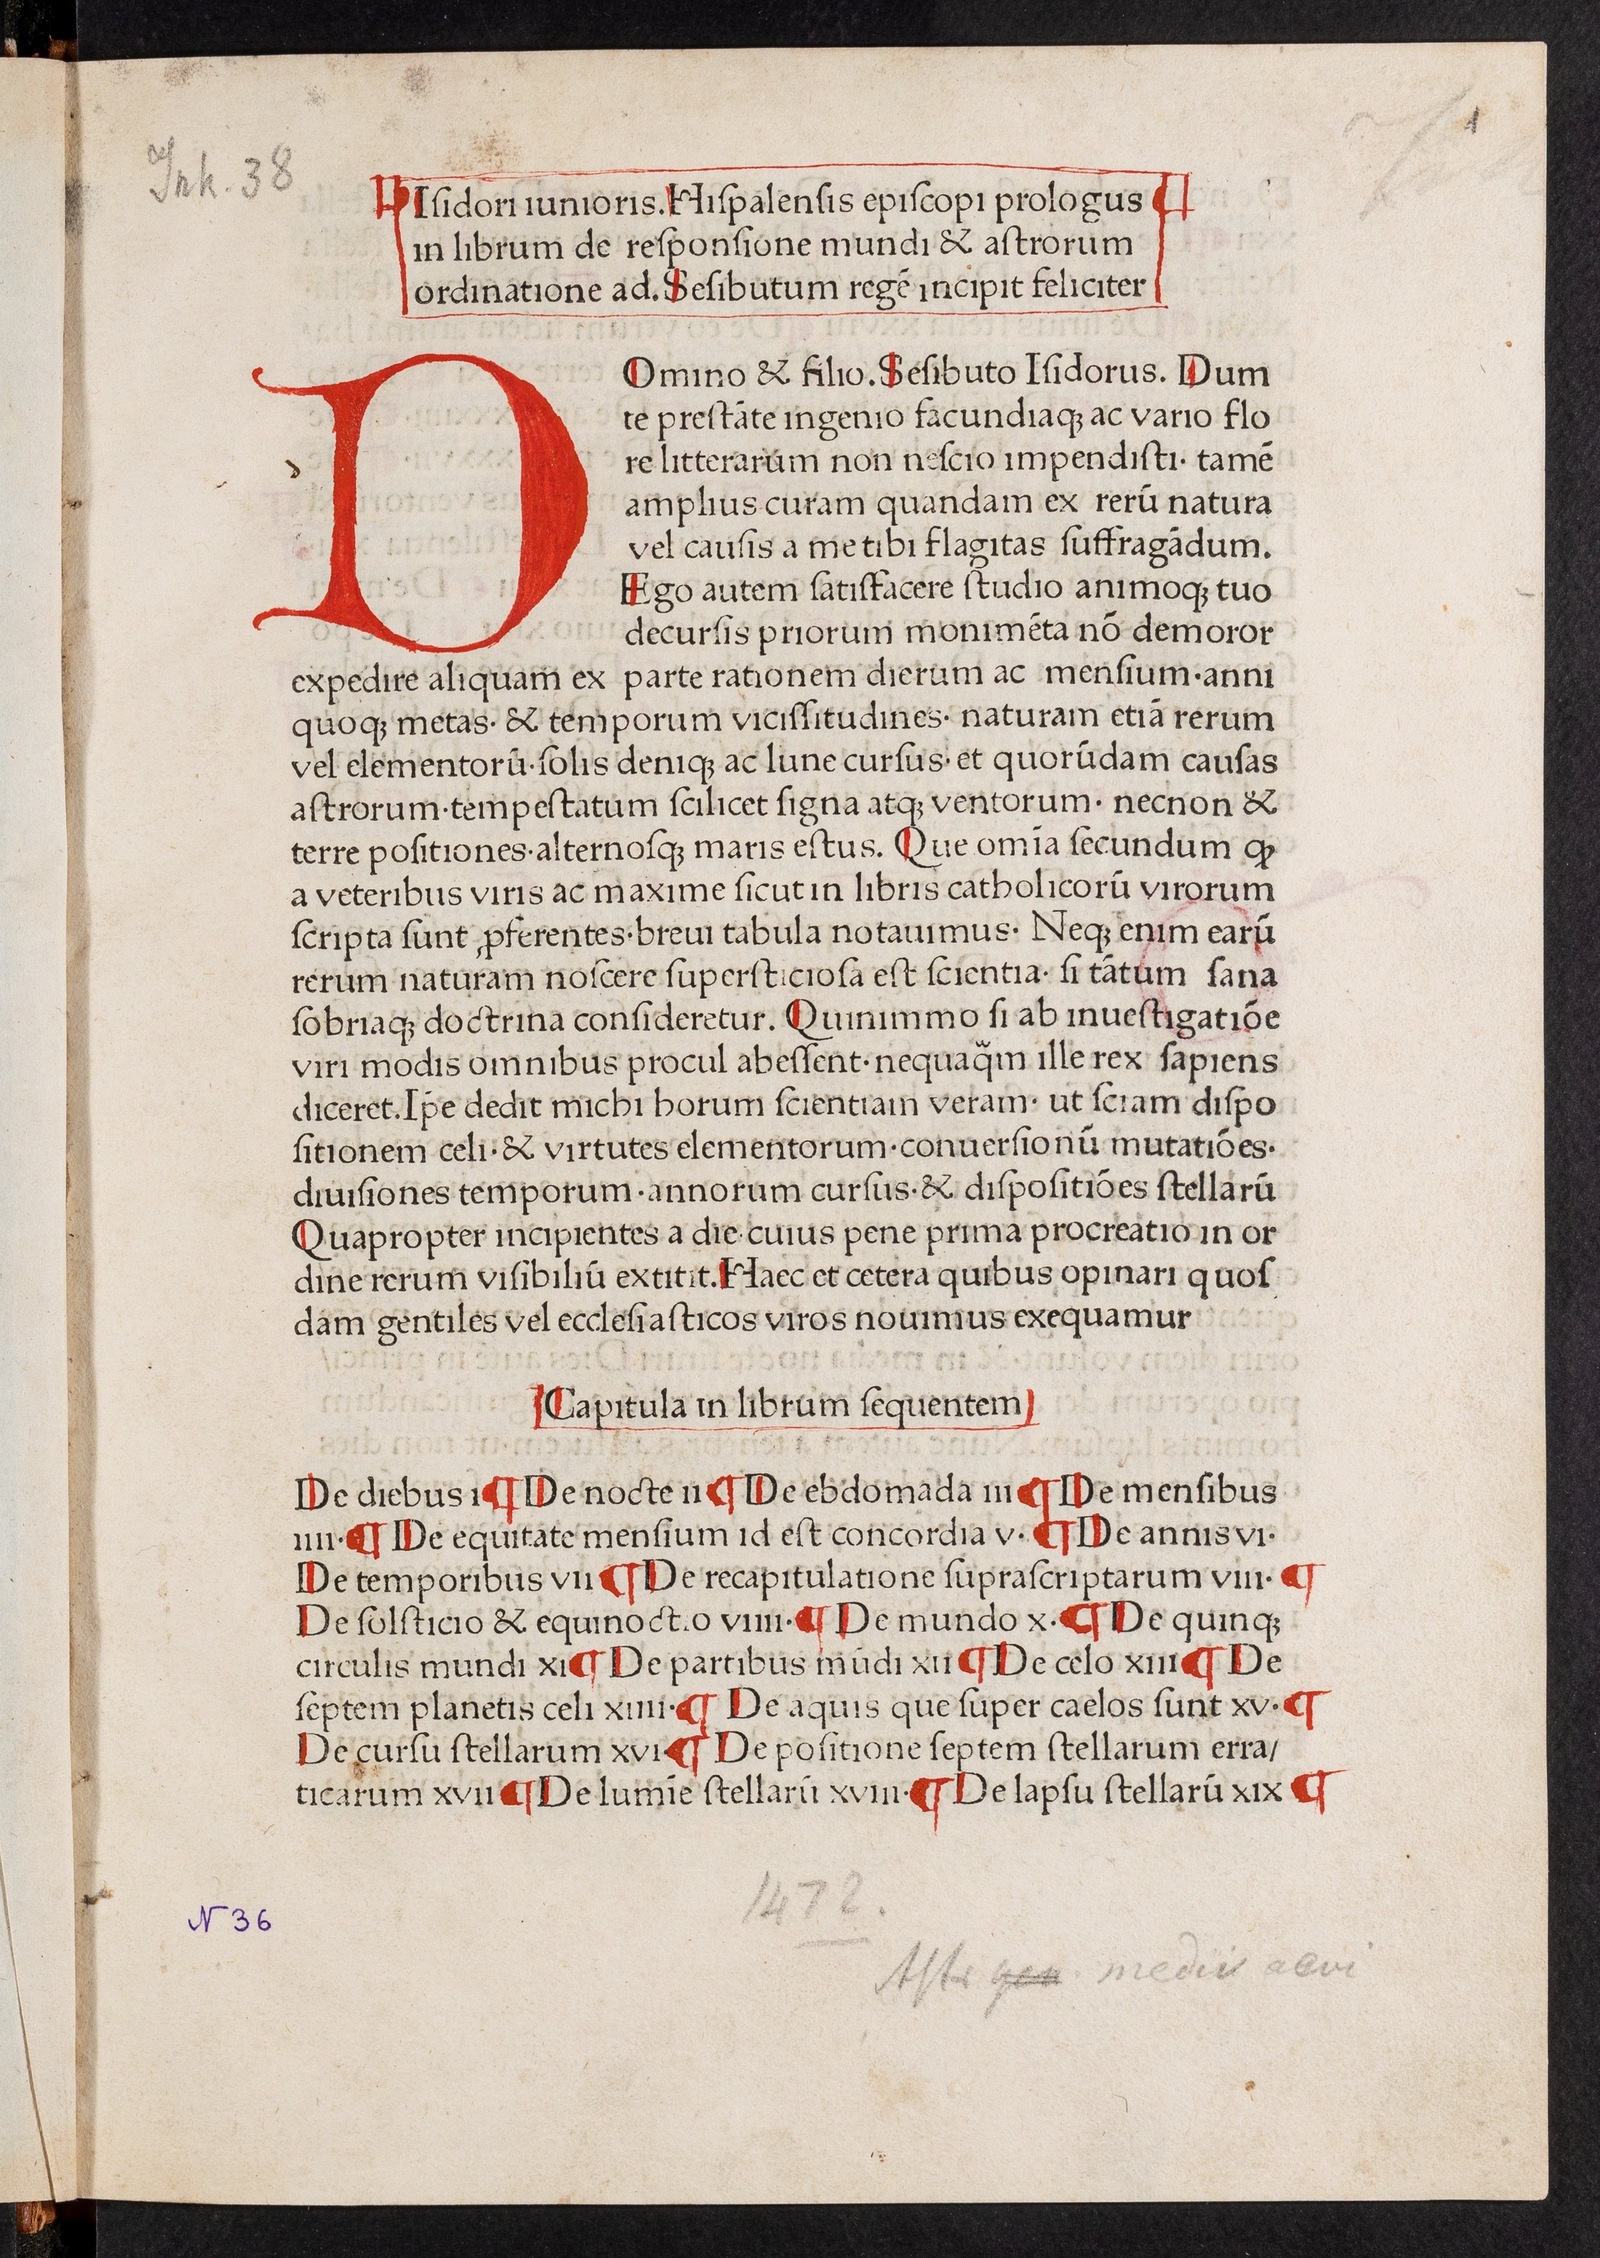 Ink. 38
1
Iſidori iunioris. Hiſpalenſis epiſcopi prologus
in librum de reſponſione mundi & aſtrorum
ordinatione ad. Seſibutum regē incipit feliciter
DOmino & filio. Seſibuto Iſidorus. Dum
te preſtāte ingenio facundiaqꝫ ac vario flo
re litterarum non neſcio impendiſti· tamē
amplius curam quandam ex rerū natura
vel cauſis a me tibi flagitas ſuffragādum.
Ego autem ſatiſfacere ſtudio animoqꝫ tuo
decurſis priorum monimēta nō demoror
expedire aliquam ex parte rationem dierum ac menſium·anni
quoqꝫ metas· & temporum viciſſitudines· naturam etiā rerum
vel elementorū·ſolis deniqꝫ ac lune curſus· et quorūdam cauſas
aſtrorum·tempeſtatum ſcilicet ſigna atqꝫ ventorum· necnon &
terre poſitiones·alternoſqꝫ maris eſtus. Que omīa ſecundum ꝙ
a veteribus viris ac maxime ſicut in libris catholicorū virorum
ſcripta ſunt ꝓferentes·breui tabula notauimus· Neqꝫ enim earū
rerum naturam noſcere ſuperſticioſa eſt ſcientia· ſi tātum ſana
ſobriaqꝫ doctrina conſideretur. Quinimmo ſi ab inueſtigatiōe
viri modis omnibus procul abeſſent·nequaq̃m ille rex ſapiens
diceret. Ip̄e dedit michi horum ſcientiam veram· ut ſciam diſpo
ſitionem celi·& virtutes elementorum·conuerſionū mutatiōes·
diuiſiones temporum·annorum curſus·& diſpoſitiōes ſtellarū
Quapropter incipientes a die·cuius pene prima procreatio in or
dine rerum viſibiliū extitit. Haec et cetera quibus opinari quoſ
dam gentiles vel eccleſiaſticos viros nouimus exequamur
Capitula in librum ſequentem
De diebus i ¶ De nocte ii ¶ De ebdomada iii ¶ De menſibus
iiii· ¶ De equitate menſium id eſt concordia v· ¶ De annis vi·
De temporibus vii ¶ De recapitulatione ſupraſcriptarum viii· ¶
De ſolſticio & equinoctio viiii· ¶ De mundo x· ¶ De quinqꝫ
circulis mundi xi ¶ De partibus mūdi xii ¶ De celo xiii ¶ De
ſeptem planetis celi xiiii· ¶ De aquis que ſuper caelos ſunt xv· ¶
De curſu ſtellarum xvi ¶ De poſitione ſeptem ſtellarum erra/
ticarum xvii ¶ De lumīe ſtellarū xviii· ¶ De lapſu ſtellarū xix ¶
1472.
N 36
medii aevi